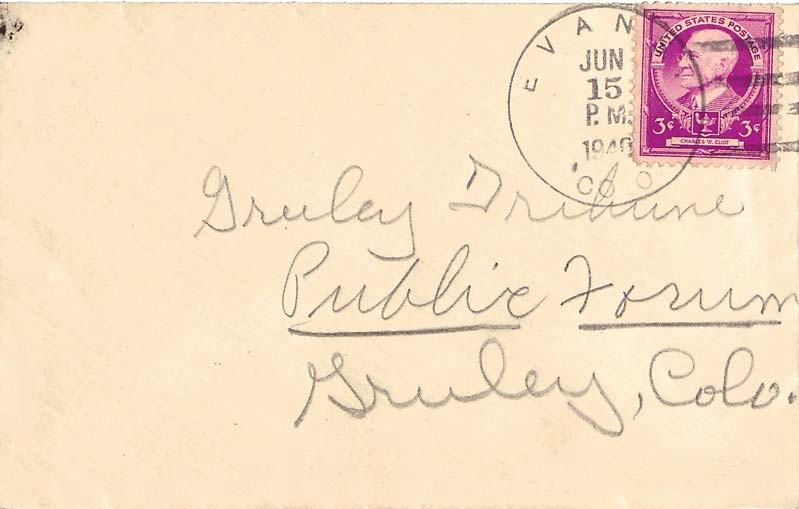 EVANS
JUN
15
P.M.
1940
COLO
UNITED STATES POSTAGE
3¢ 3¢
CHARLES W. ELIOT
Greeley Tribune
Public Forum
Greeley, Colo.